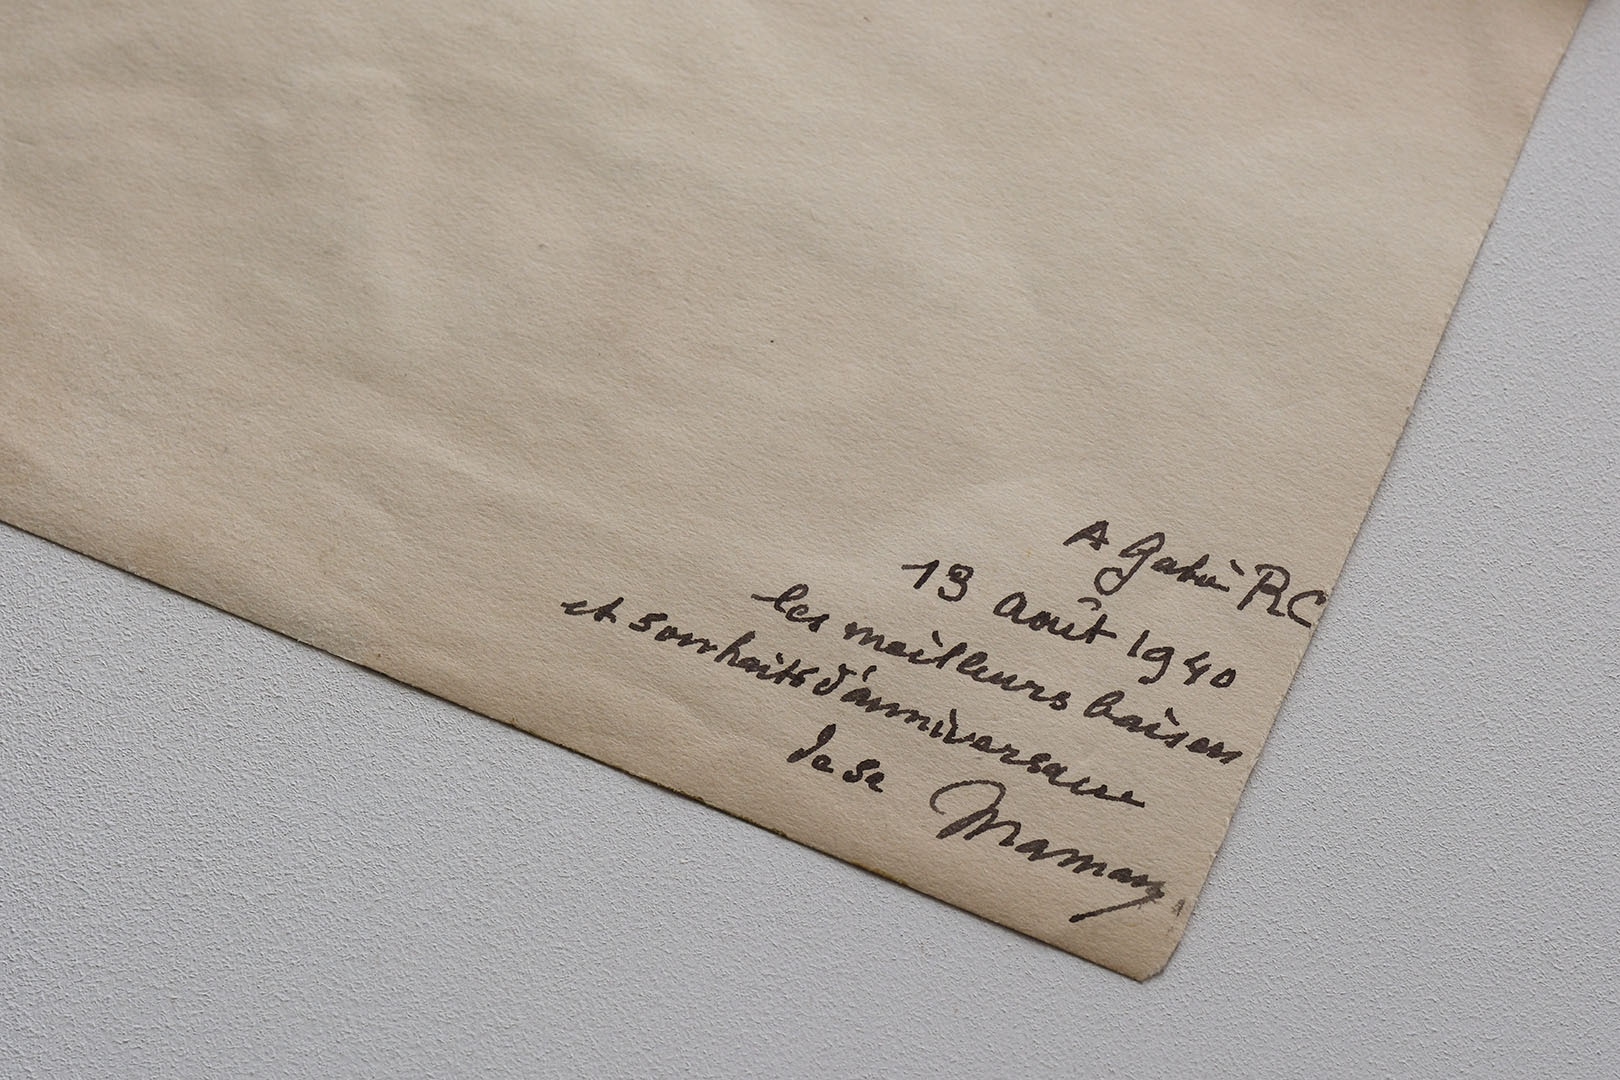 A Gabri RC
13 août 1940
les meilleurs baisers
et souhaits d'anniversaire
de sa Maman